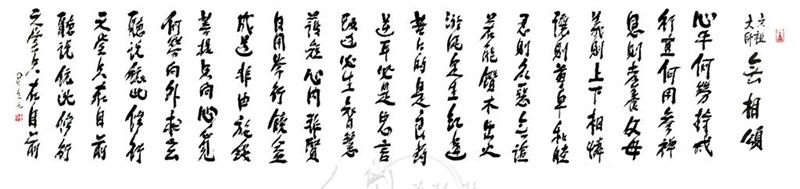 六祖
大师
無相頌
心平何勞持戒
行直何用參禪
恩則孝養父母
義則上下相憐
讓則尊卑和睦
忍則眾惡無諠
若能鑽木出火
淤泥定生紅蓮
苦口的是良藥
逆耳必是忠言
改過必生智慧
護短心內非賢
日用常行饒益
成道非由施錢
菩提只向心覓
何勞向外求玄
聽說依此修行
天堂只在目前
聽說依此修行
天堂只在目前